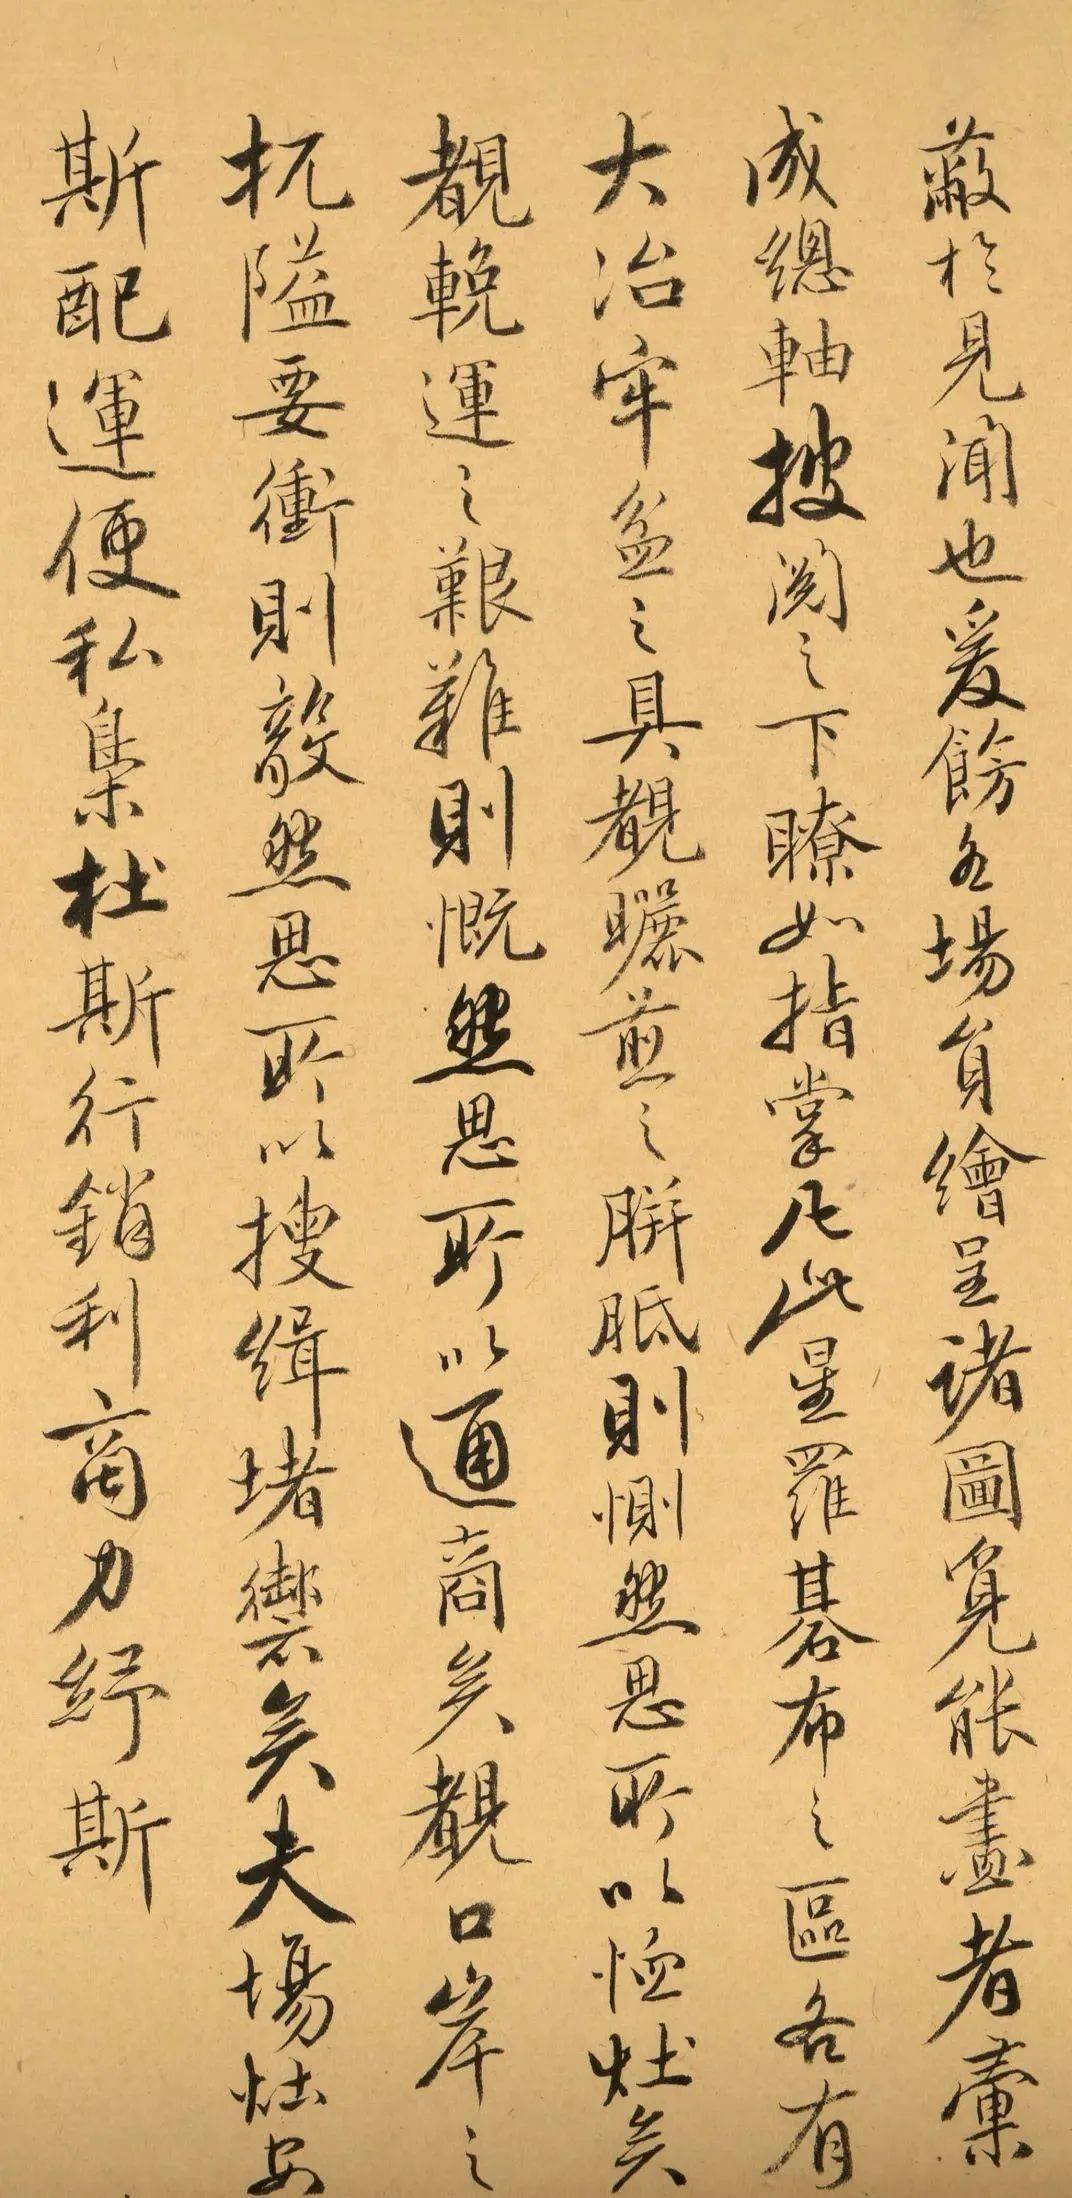 蔽於見聞也爰飭各場員繪呈諸圖覓能畫者彙
成總軸披閱之下瞭如指掌凡此星羅碁布之區各有
大冶牢盆之具覩曬煎之胼胝則惻然思所以恤灶矣
覩輓運之艱難則慨然思所以通商矣覩口岸之
扼隘要衝則殽然思所以搜緝堵禦矣夫場灶安
斯配運便私梟杜斯行銷利商力紓斯